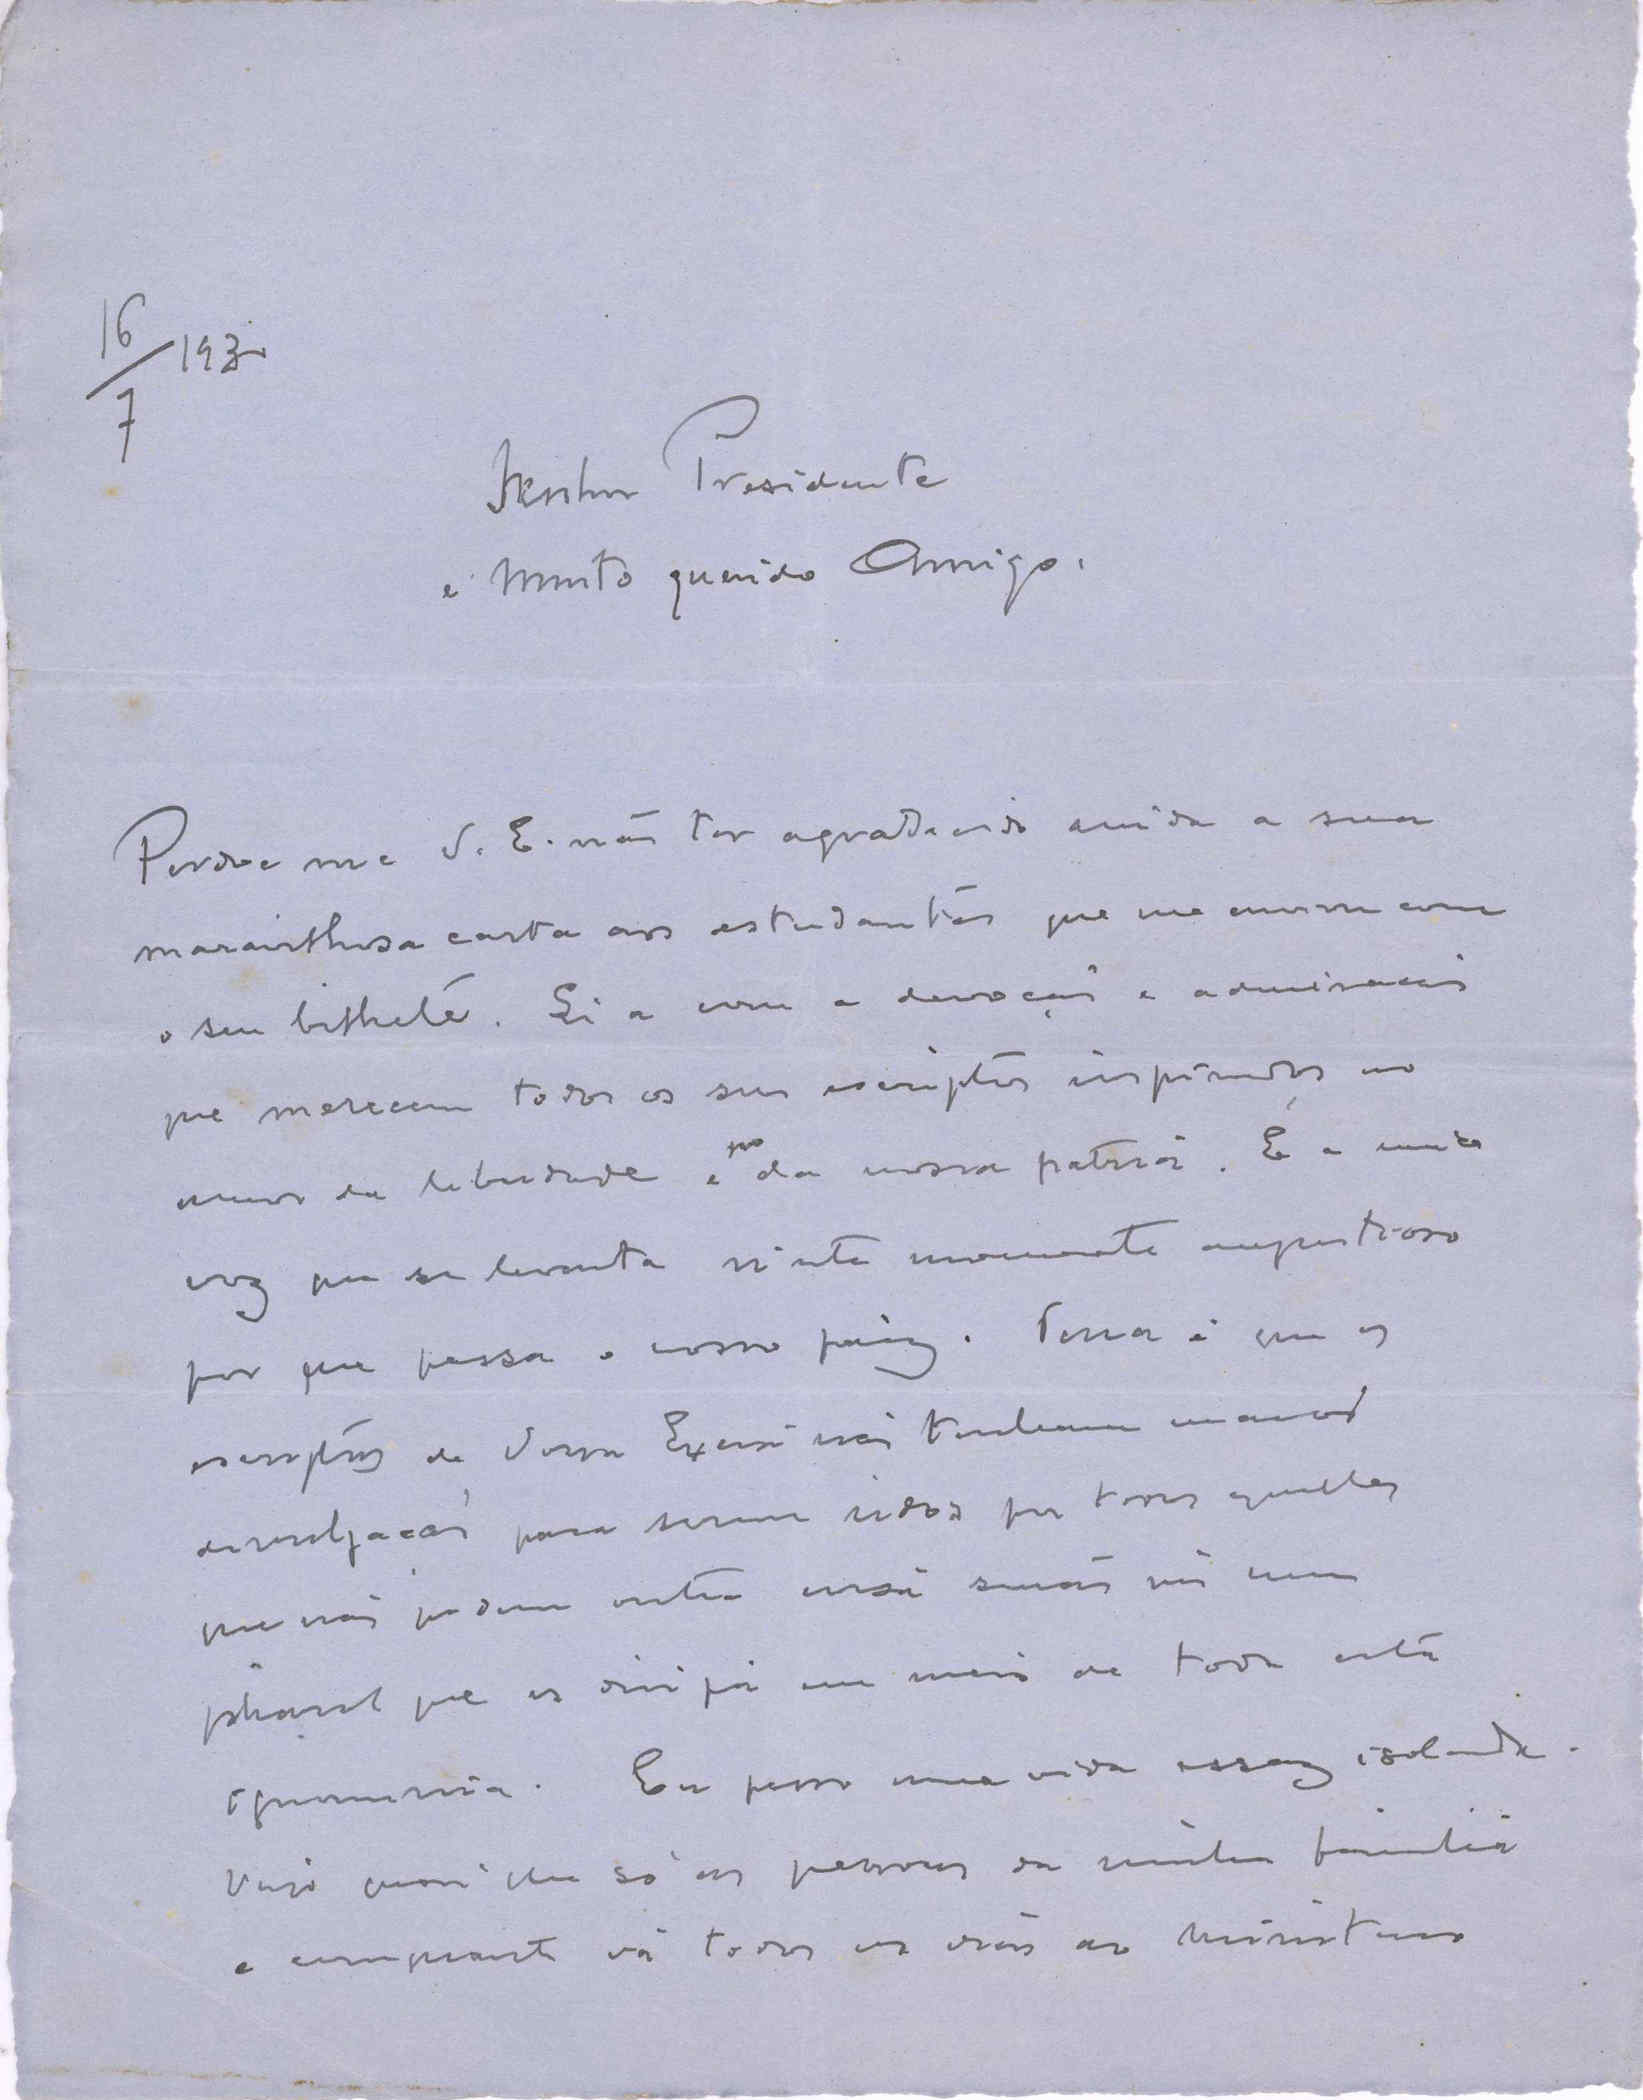 16/7 193
Senhor Presidente
e Muito querido Amigo.
Perdoe me V. E. não ter agradecido ainda a sua
maravilhosa carta aos estudantes que me enviou com
o seu bilhete. Li a com a devoção e admiração
que merecem todos os seus escriptos inspirados no
amor da liberdade e no da nossa patria. É a unica
voz que se levanta n'este momento angustioso
por que passa o nosso paiz. Pena é que os
escriptos de Vossa Excia não tenham maior
divulgação para serem lidos por todos aquelles
que não pedem outra coisa senão um
pharol que os dirija em meio de toda esta
ignominia. Eu passo uma vida assaz isolada.
Vejo quasi que só as pessoas da minha familia
e emquanto vá todos os dias ao Ministerio